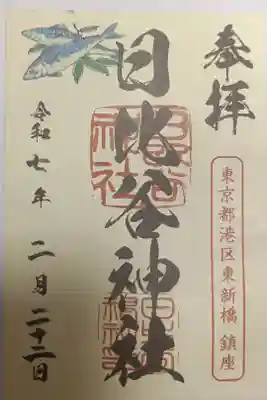 奉拝
東京都港区東新橋 鎮座
日比谷神社
令和七年 二月 二十二日